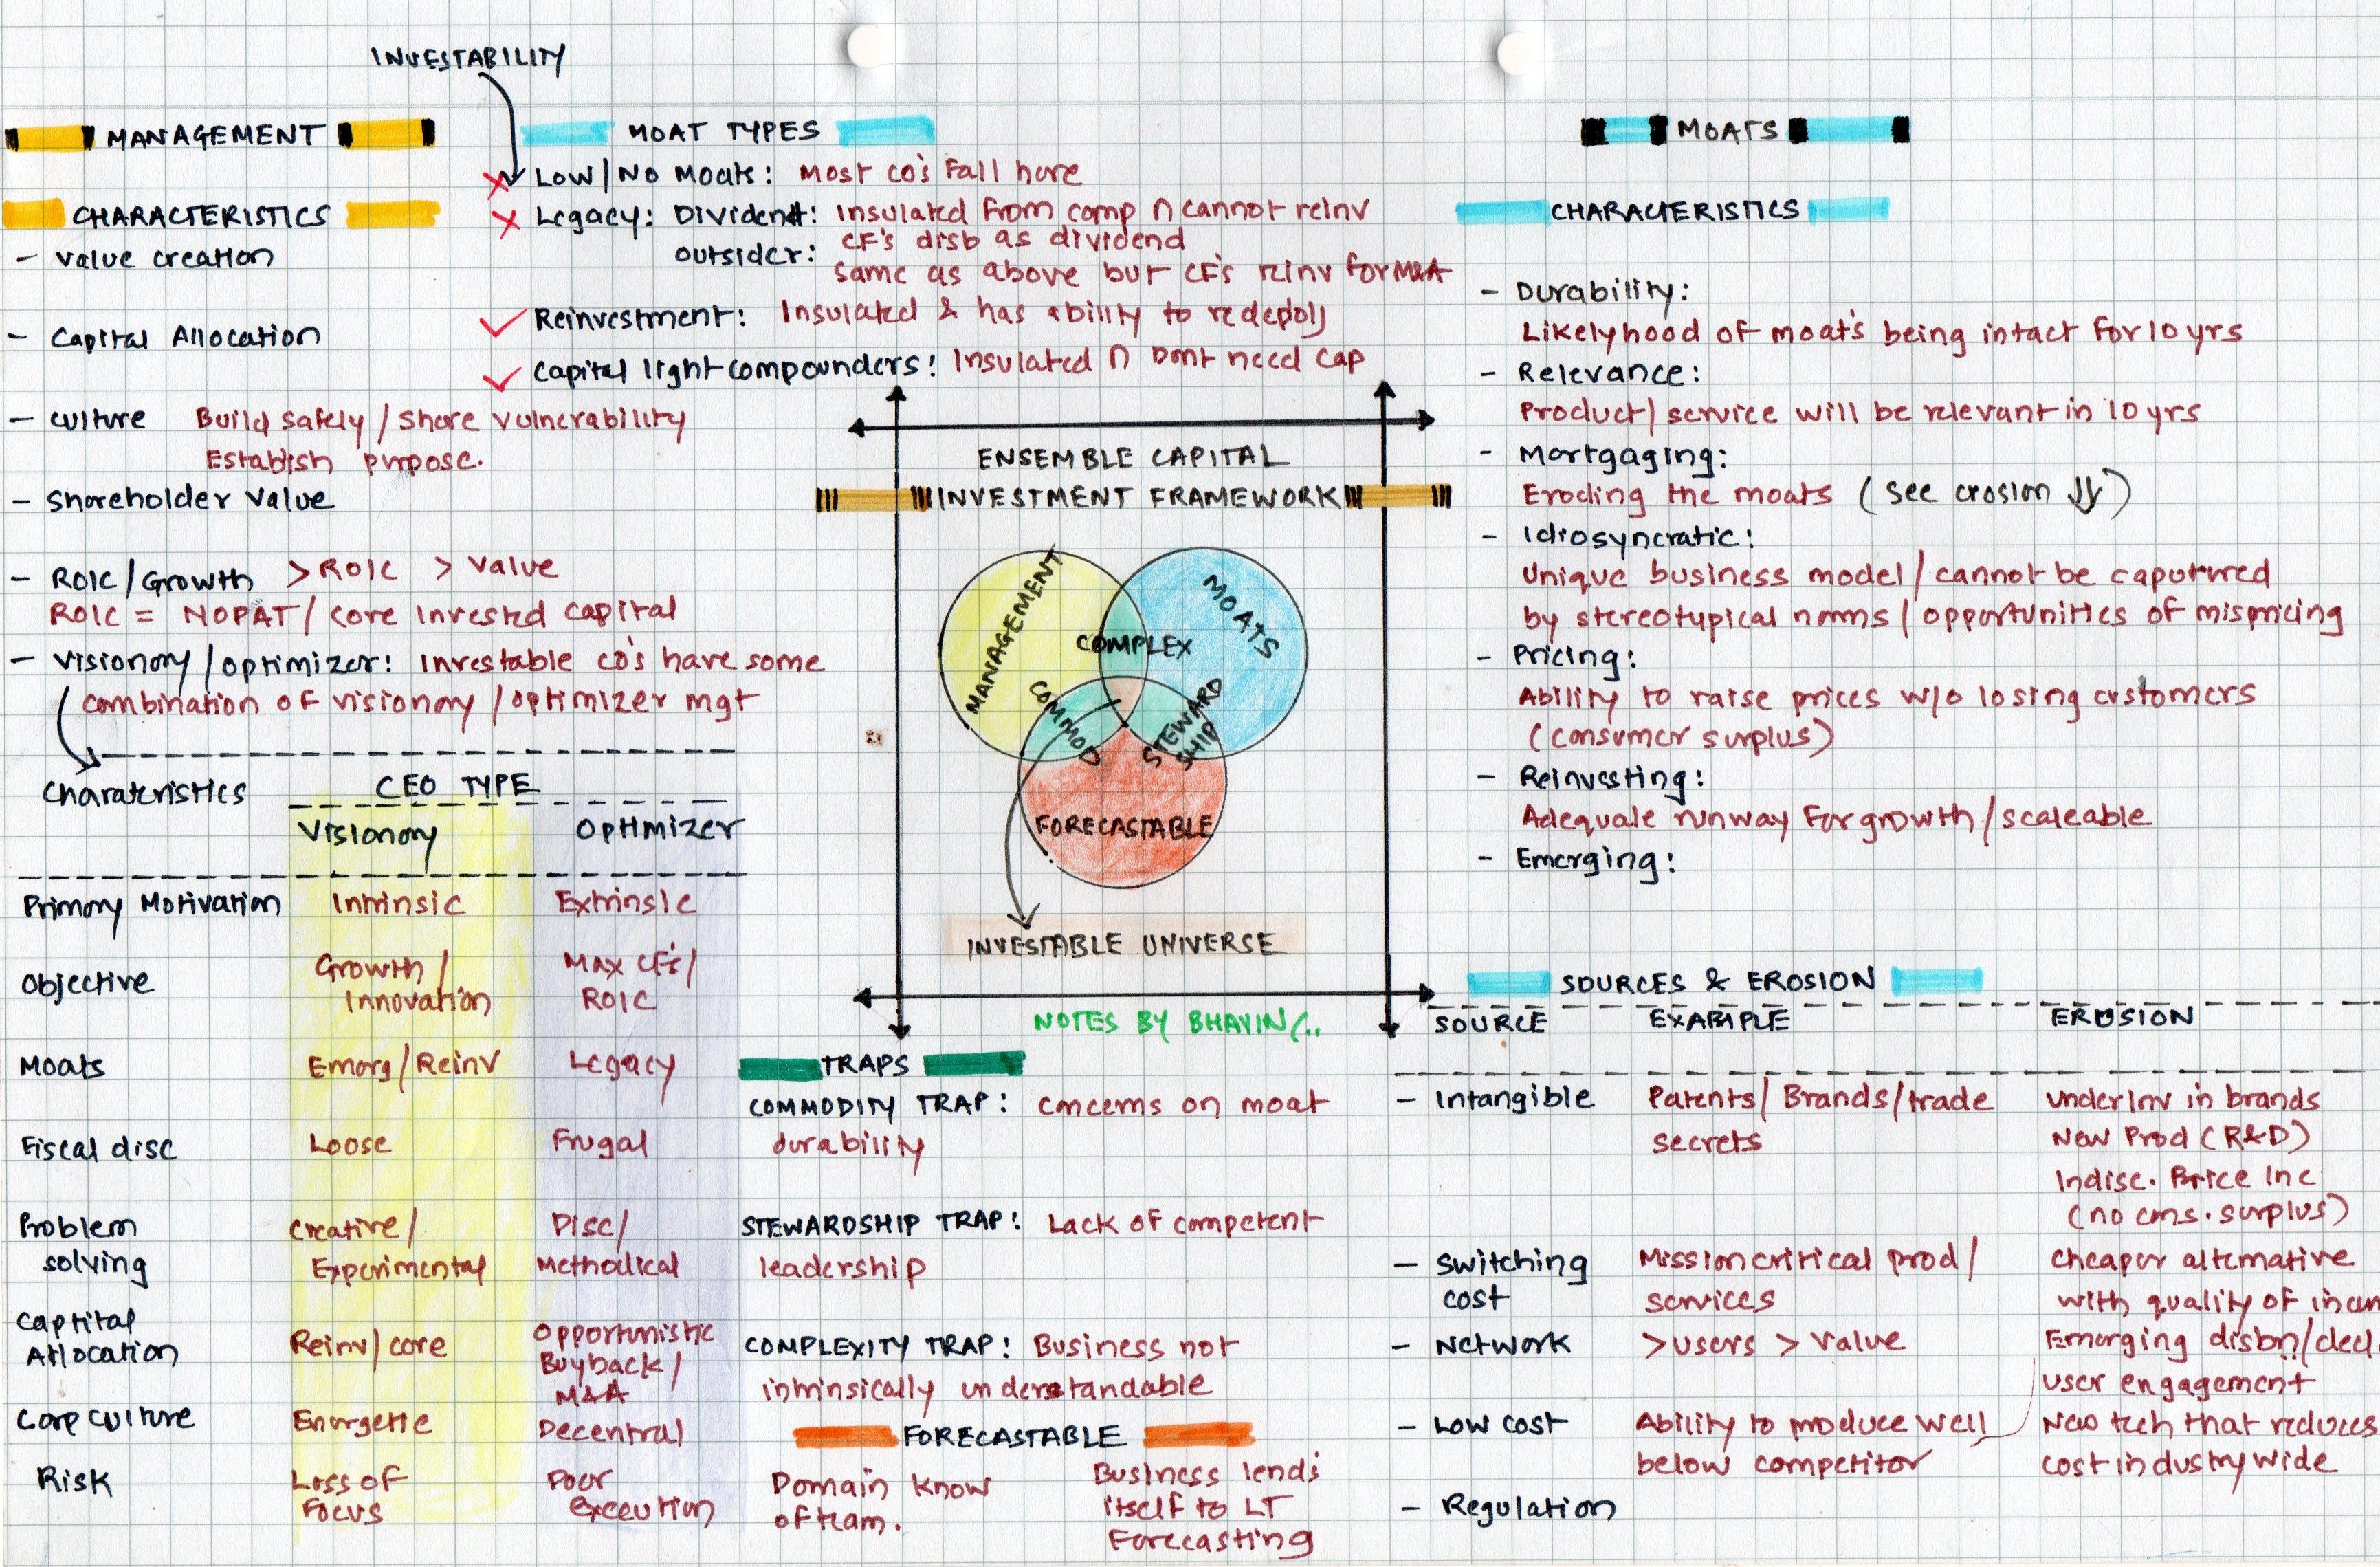 INVESTABILITY
MANAGEMENT
CHARACTERISTICS
- Value creation
- Capital Allocation
- Culture Build Safely / Share Vulnerability
Establish purpose.
- Shareholder Value
- ROIC/Growth > ROIC > Value
ROIC = NOPAT / Core Invested Capital
- Visionary / optimizer: Investable co's have some
combination of visionary / optimizer mgt
Charateristics
CEO TYPE
Visionary Optimizer
Primary Motivation Intrinsic Extrinsic
Objective Growth / Innovation Max CF's / ROIC
Moats Emerg/Reinv Legacy
Fiscal disc Loose Frugal
Problem solving Creative / Experimental Disc/ Methodical
Captital Allocation Reinv/core Opportunistic Buyback / M&A
Corp culture Energetic Decentral
Risk Loss of Focus Poor execution
MOAT TYPES
Low / No Moats: Most co's Fall here
Legacy: Dividend: Insulated from comp n cannot reinv
CF's disb as dividend
outsider: Same as above but CF's reinv for M&A
Reinvestment: Insulated & has ability to redeploy
Capital light compounders: Insulated n Dont need cap
ENSEMBLE CAPITAL
INVESTMENT FRAMEWORK
MANAGEMENT
MOATS
COMPLEX
COMMOD
STEWARD
SHIP
FORECASTABLE
INVESTABLE UNIVERSE
NOTES BY BHAVIN
TRAPS
COMMODITY TRAP: Concerns on moat
durability
STEWARDSHIP TRAP: Lack of competent
leadership
COMPLEXITY TRAP: Business not
intrinsically understandable
FORECASTABLE
Domain know
of team.
Business lends
itself to LT
Forecasting
MOATS
CHARACTERISTICS
- Durability:
Likelyhood of moat's being intact for 10 yrs
- Relevance:
Product / service will be relevant in 10 yrs
- Mortgaging:
Eroding the moats (see erosion ↓↓)
- Idiosyncratic:
Unique business model / cannot be caputured
by stereotypical norms / opportunities of mispricing
- Pricing:
Ability to raise prices w/o losing customers
(consumer surplus)
- Reinvesting:
Adequate runway for growth / scaleable
- Emerging:
SOURCES & EROSION
SOURCE EXAMPLE EROSION
- Intangible Patents / Brands / trade secrets
UnderInv in brands
New Prod (R&D)
Indisc. Price Inc
(no cons. surplus)
- Switching cost Mission critical prod / services
Cheaper alternative
with quality of
- Network > users > Value
Emerging
user engagement
- Low cost Ability to produce well below competitor
New tech that reduces
cost industry wide
- Regulation